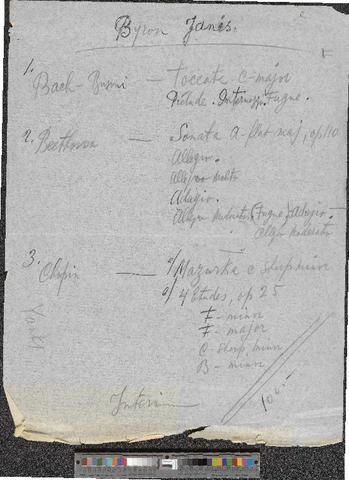 Byron Janis.
1. Bach-Busoni — Toccata C-major
Prelude. Intermezzo. Fugue.
2. Beethoven — Sonata A-flat maj, op 110
Allegro.
Allegro molto
Adagio.
Allegro (Fugue) Adagio.
Allegro moderato
3. Chopin — a/ Mazurka C sharp minor
4 Etudes, op 25
F - minor
F - major
C - sharp minor
B - minor